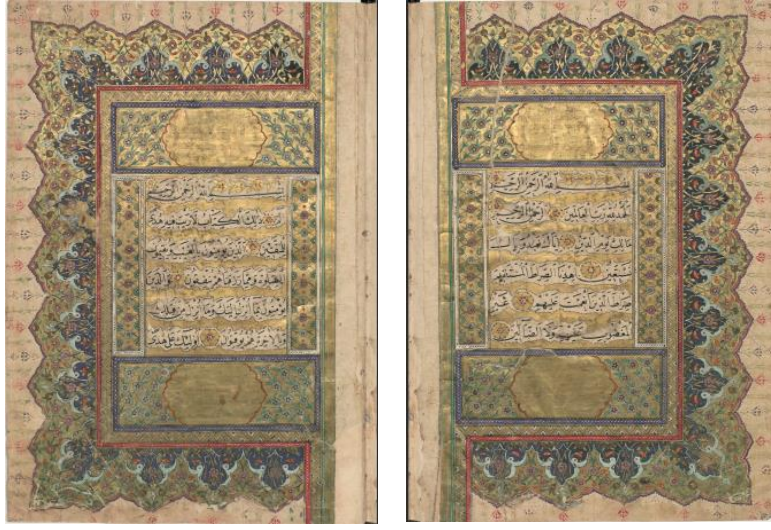 بِسْمِ اللّٰهِ الرَّحْمٰنِ الرَّحِيمِ
اَلْحَمْدُ لِلّٰهِ رَبِّ الْعَالَمِينَ الرَّحْمٰنِ الرَّحِيمِ
مَالِكِ يَوْمِ الدِّينِ اِيَّاكَ نَعْبُدُ وَاِيَّاكَ نَسْـ
ـتَعِينُ اِهْدِنَا الصِّرَاطَ الْمُسْتَقِيمَ
صِرَاطَ الَّذِينَ اَنْعَمْتَ عَلَيْهِمْ غَيْرِ
الْمَغْضُوبِ عَلَيْهِمْ وَلَا الضَّالِّينَ
بِسْمِ اللّٰهِ الرَّحْمٰنِ الرَّحِيمِ
الم ذٰلِكَ الْكِتَابُ لَا رَيْبَ فِيهِ هُدًى
لِلْمُتَّقِينَ الَّذِينَ يُؤْمِنُونَ بِالْغَيْبِ وَيُقِيمُونَ
الصَّلٰوةَ وَمِمَّا رَزَقْنَاهُمْ يُنْفِقُونَ وَالَّذِينَ
يُؤْمِنُونَ بِمَا اُنْزِلَ اِلَيْكَ وَمَا اُنْزِلَ مِنْ قَبْلِكَ
وَبِالْاٰخِرَةِ هُمْ يُوقِنُونَ اُولٰئِكَ عَلٰى هُدًى